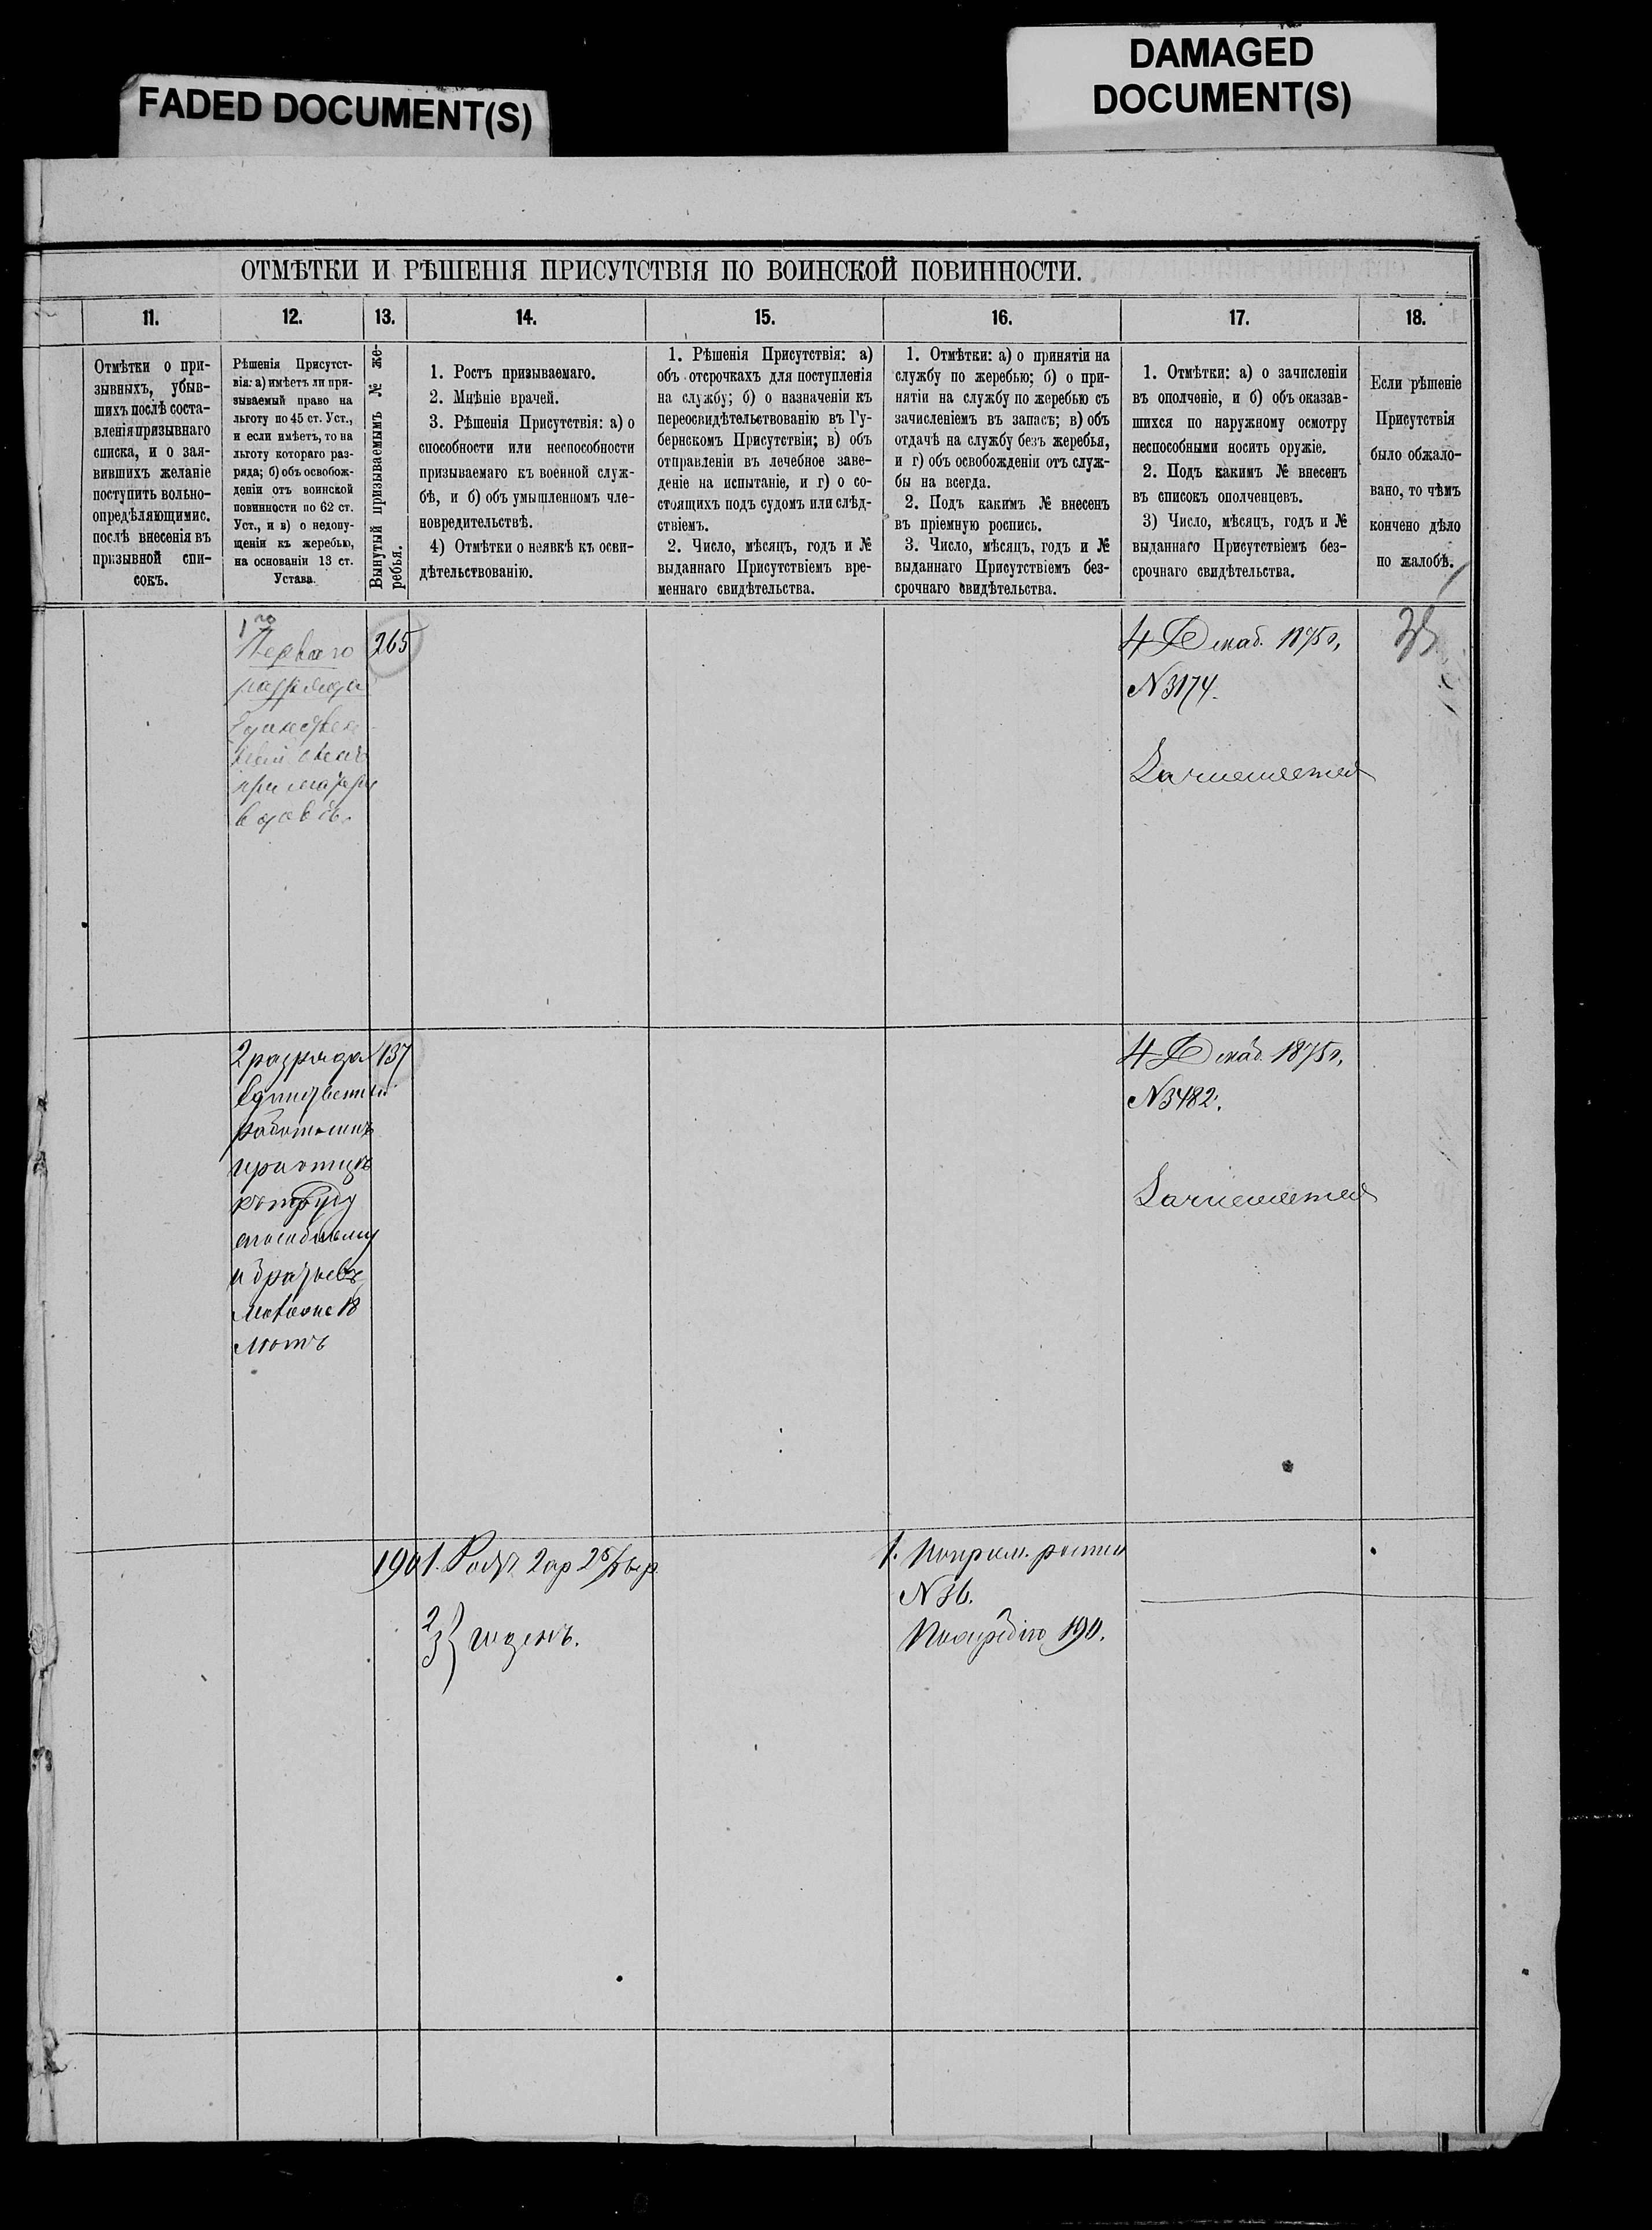 FADED DOCUMENT(S)
DAMAGED
DOCUMENT(S)
ОТМѢТКИ И РѢШЕНІЯ ПРИСУТСТВІЯ ПО ВОИНСКОЙ ПОВИННОСТИ.
11.
Отмѣтки о при-
зывныхъ, убыв-
шихъ послѣ соста-
вленія призывнаго
списка, и о зая-
вившихъ желаніе
поступить вольно-
опредѣляющимис.
послѣ внесенія въ
призывной спи-
сокъ.
12.
Рѣшенія Присутст-
вія: а) имѣетъ ли при-
зываемый право на
льготу по 45 ст. Уст.,
и если имѣетъ, то на
льготу котораго раз-
ряда; б) объ освобож-
деніи отъ воинской
повинности по 62 ст.
Уст., и в) о недопу-
щеніи къ жеребью,
на основаніи 13 ст.
Устава.
13.
Вынутый призываемымъ № же-
ребья.
14.
1. Ростъ призываемаго.
2. Мнѣніе врачей.
3. Рѣшенія Присутствія: а) о
способности или неспособности
призываемаго къ военной служ-
бѣ, и б) объ умышленномъ чле-
новредительствѣ.
4) Отмѣтки о неявкѣ къ осви-
дѣтельствованію.
15.
1. Рѣшенія Присутствія: а)
объ отсрочкахъ для поступленія
на службу; б) о назначеніи къ
переосвидѣтельствованію въ Гу-
бернскомъ Присутствіи; в) объ
отправленіи въ лечебное заве-
деніе на испытаніе, и г) о со-
стоящихъ подъ судомъ или слѣд-
ствіемъ.
2. Число, мѣсяцъ, годъ и №
выданнаго Присутствіемъ вре-
меннаго свидѣтельства.
16.
1. Отмѣтки: а) о принятіи на
службу по жеребью; б) о при-
нятіи на службу по жеребью съ
зачисленіемъ въ запасъ; в) объ
отдачѣ на службу безъ жеребья,
и г) объ освобожденіи отъ служ-
бы на всегда.
2. Подъ какимъ № внесенъ
въ пріемную роспись.
3. Число, мѣсяцъ, годъ и №
выданнаго Присутствіемъ без-
срочнаго свидѣтельства.
17.
1. Отмѣтки: а) о зачисленіи
въ ополченіе, и б) объ оказав-
шихся по наружному осмотру
неспособными носить оружіе.
2. Подъ какимъ № внесенъ
въ списокъ ополченцевъ.
3) Число, мѣсяцъ, годъ и №
выданнаго Присутствіемъ без-
срочнаго свидѣтельства.
18.
Если рѣшеніе
Присутствія
было обжало-
вано, то чѣмъ
кончено дѣло
по жалобѣ.
1го
Перваго
разряда
Единствен-
ный сынъ
при матери
вдовѣ.
265
4 Декаб. 1875г.
N 3174.
Зачисляется
2 разряда
Единственный
работникъ
при отцѣ
къ труду
способному
и братьевъ
моложе 18
лѣтъ
137
4 Декаб. 1875г.
N 3482.
Зачисляется
190
1. Ростъ 2 ар
2
3 } годенъ.
1. По пріем. росписи
N 36.
По жребію 190.